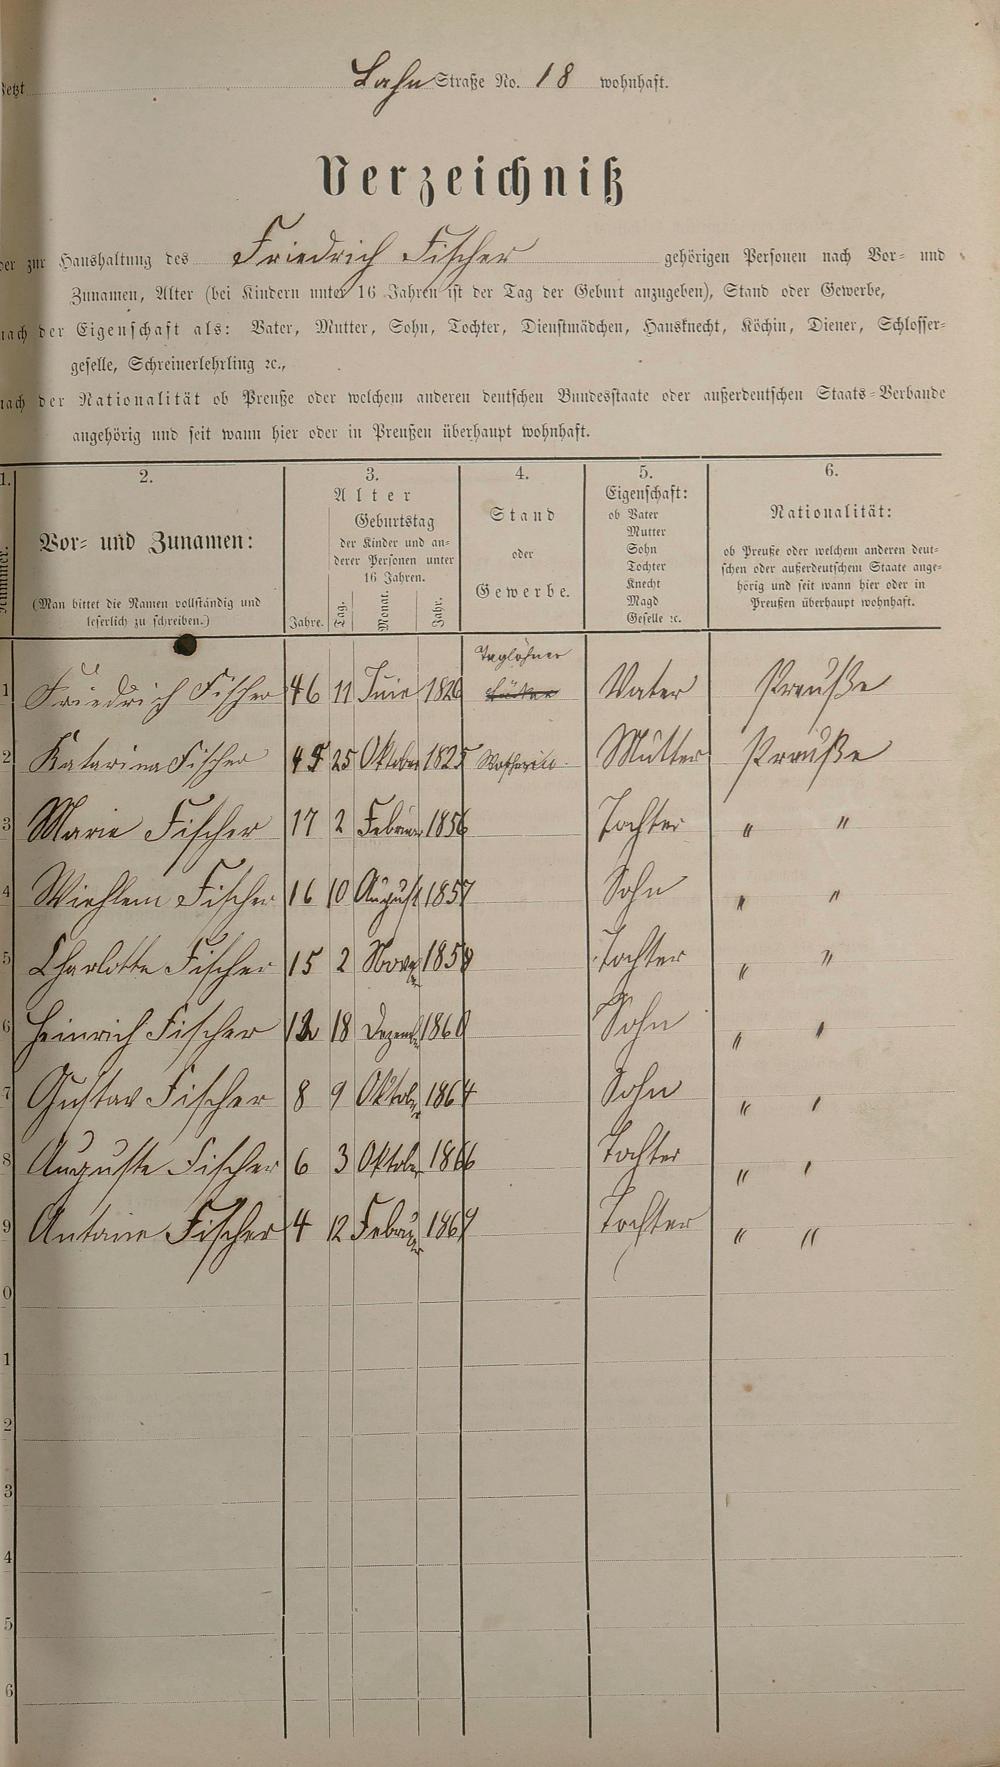 Jetzt Lahn Straße No. 18 wohnhaft.
Verzeichniß
der zur Haushaltung des Friedrich Fischer gehörigen Personen nach Vor- und
Zunamen, Alter (bei Kindern unter 16 Jahren ist der Tag der Geburt anzugeben), Stand oder Gewerbe,
nach der Eigenschaft als: Vater, Mutter, Sohn, Tochter, Dienstmädchen, Hausknecht, Köchin, Diener, Schlosser-
geselle, Schreinerlehrling ꝛc.,
nach der Nationalität ob Preuße oder welchem anderen deutschen Bundesstaate oder außerdeutschen Staats-Verbande
angehörig und seit wann hier oder in Preußen überhaupt wohnhaft.
1. 2. 3. 4. 5. 6.
Nummer.
Vor- und Zunamen:
(Man bittet die Namen vollständig und
leserlich zu schreiben.)
Alter
Geburtstag
der Kinder und an-
derer Personen unter
16 Jahren.
Jahre. Tag. Monat. Jahr.
Stand
oder
Gewerbe.
Eigenschaft:
ob Vater
Mutter
Sohn
Tochter
Knecht
Magd
Geselle ꝛc.
Nationalität:
ob Preuße oder welchem anderen deut-
schen oder außerdeutschem Staate ange-
hörig und seit wann hier oder in
Preußen überhaupt wohnhaft.
Taglöhner
1 Friedrich Fischer 46 11 Junie 1826 Vater Preuße
2 Katarina Fischer 45 25 Oktober 1825 Mutter Preuße
3 Marie Fischer 17 2 Februar 1856 Tochter " "
4 Wiehlem Fischer 16 10 August 1857 Sohn " "
5 Charlotte Fischer 15 2 1858 Tochter " "
6 Heinrich Fischer 12 18 Dezember 1860 Sohn " "
7 Gustav Fischer 8 9 Oktober 1864 Sohn " "
8 Auguste Fischer 6 3 Oktober 1866 Tochter " "
9 Antonie Fischer 4 12 Februar 1869 Tochter " "
0
1
2
3
4
5
6